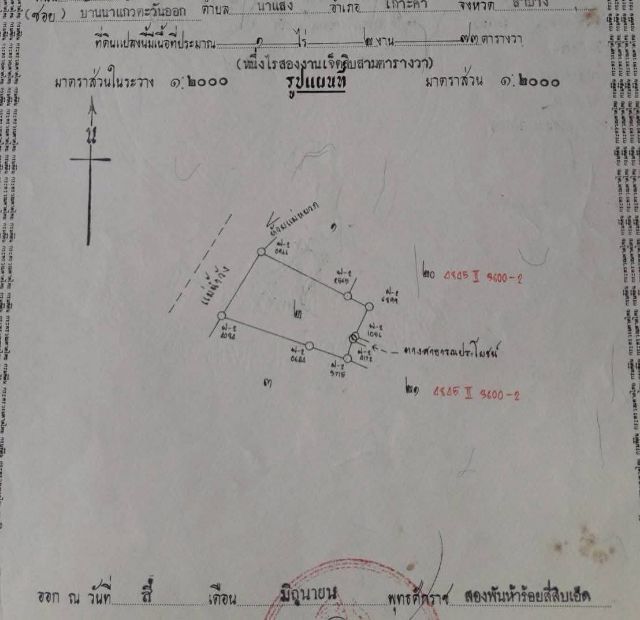 (ซอย) บ้านนาแก้วตะวันออก ตำบล นาแส่ง อำเภอ เกาะคา จังหวัด ลำปาง
ที่ดินแปลงนี้มีเนื้อที่ประมาณ ๑ ไร่ ๒ งาน ๗๓ ตารางวา
(หนึ่งไร่สองงานเจ็ดสิบสามตารางวา)
มาตราส่วนในระวาง ๑:๒๐๐๐ รูปแผนที่ มาตราส่วน ๑:๒๐๐๐
น
แม่น้ำวัง
๑
๒๐ 4845 II 3600-2
๒
ทางสาธารณประโยชน์
๓
๒๑ 4845 II 3600-2
ออก ณ วันที่ สี่ เดือน มิถุนายน พุทธศักราช สองพันห้าร้อยสี่สิบเอ็ด